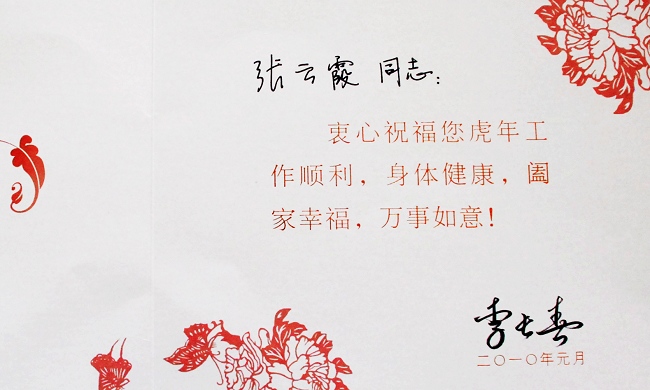 张云霞 同志：
衷心祝福您虎年工
作顺利，身体健康，阖
家幸福，万事如意！
李长春
二〇一〇年元月